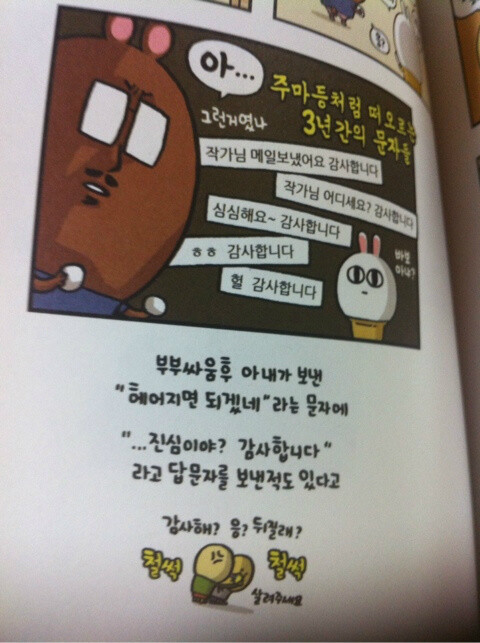 응?
아...
그런거였나
주마등처럼 떠오르는
3년간의 문자들
작가님 메일보냈어요 감사합니다
작가님 어디세요? 감사합니다
심심해요~ 감사합니다
ㅎㅎ 감사합니다
헐 감사합니다
바보
아냐?
부부싸움후 아내가 보낸
"헤어지면 되겠네"라는 문자에
"...진심이야? 감사합니다"
라고 답문자를 보낸적도 있다고
감사해? 응? 뒤질래?
철썩
철썩
살려주세요